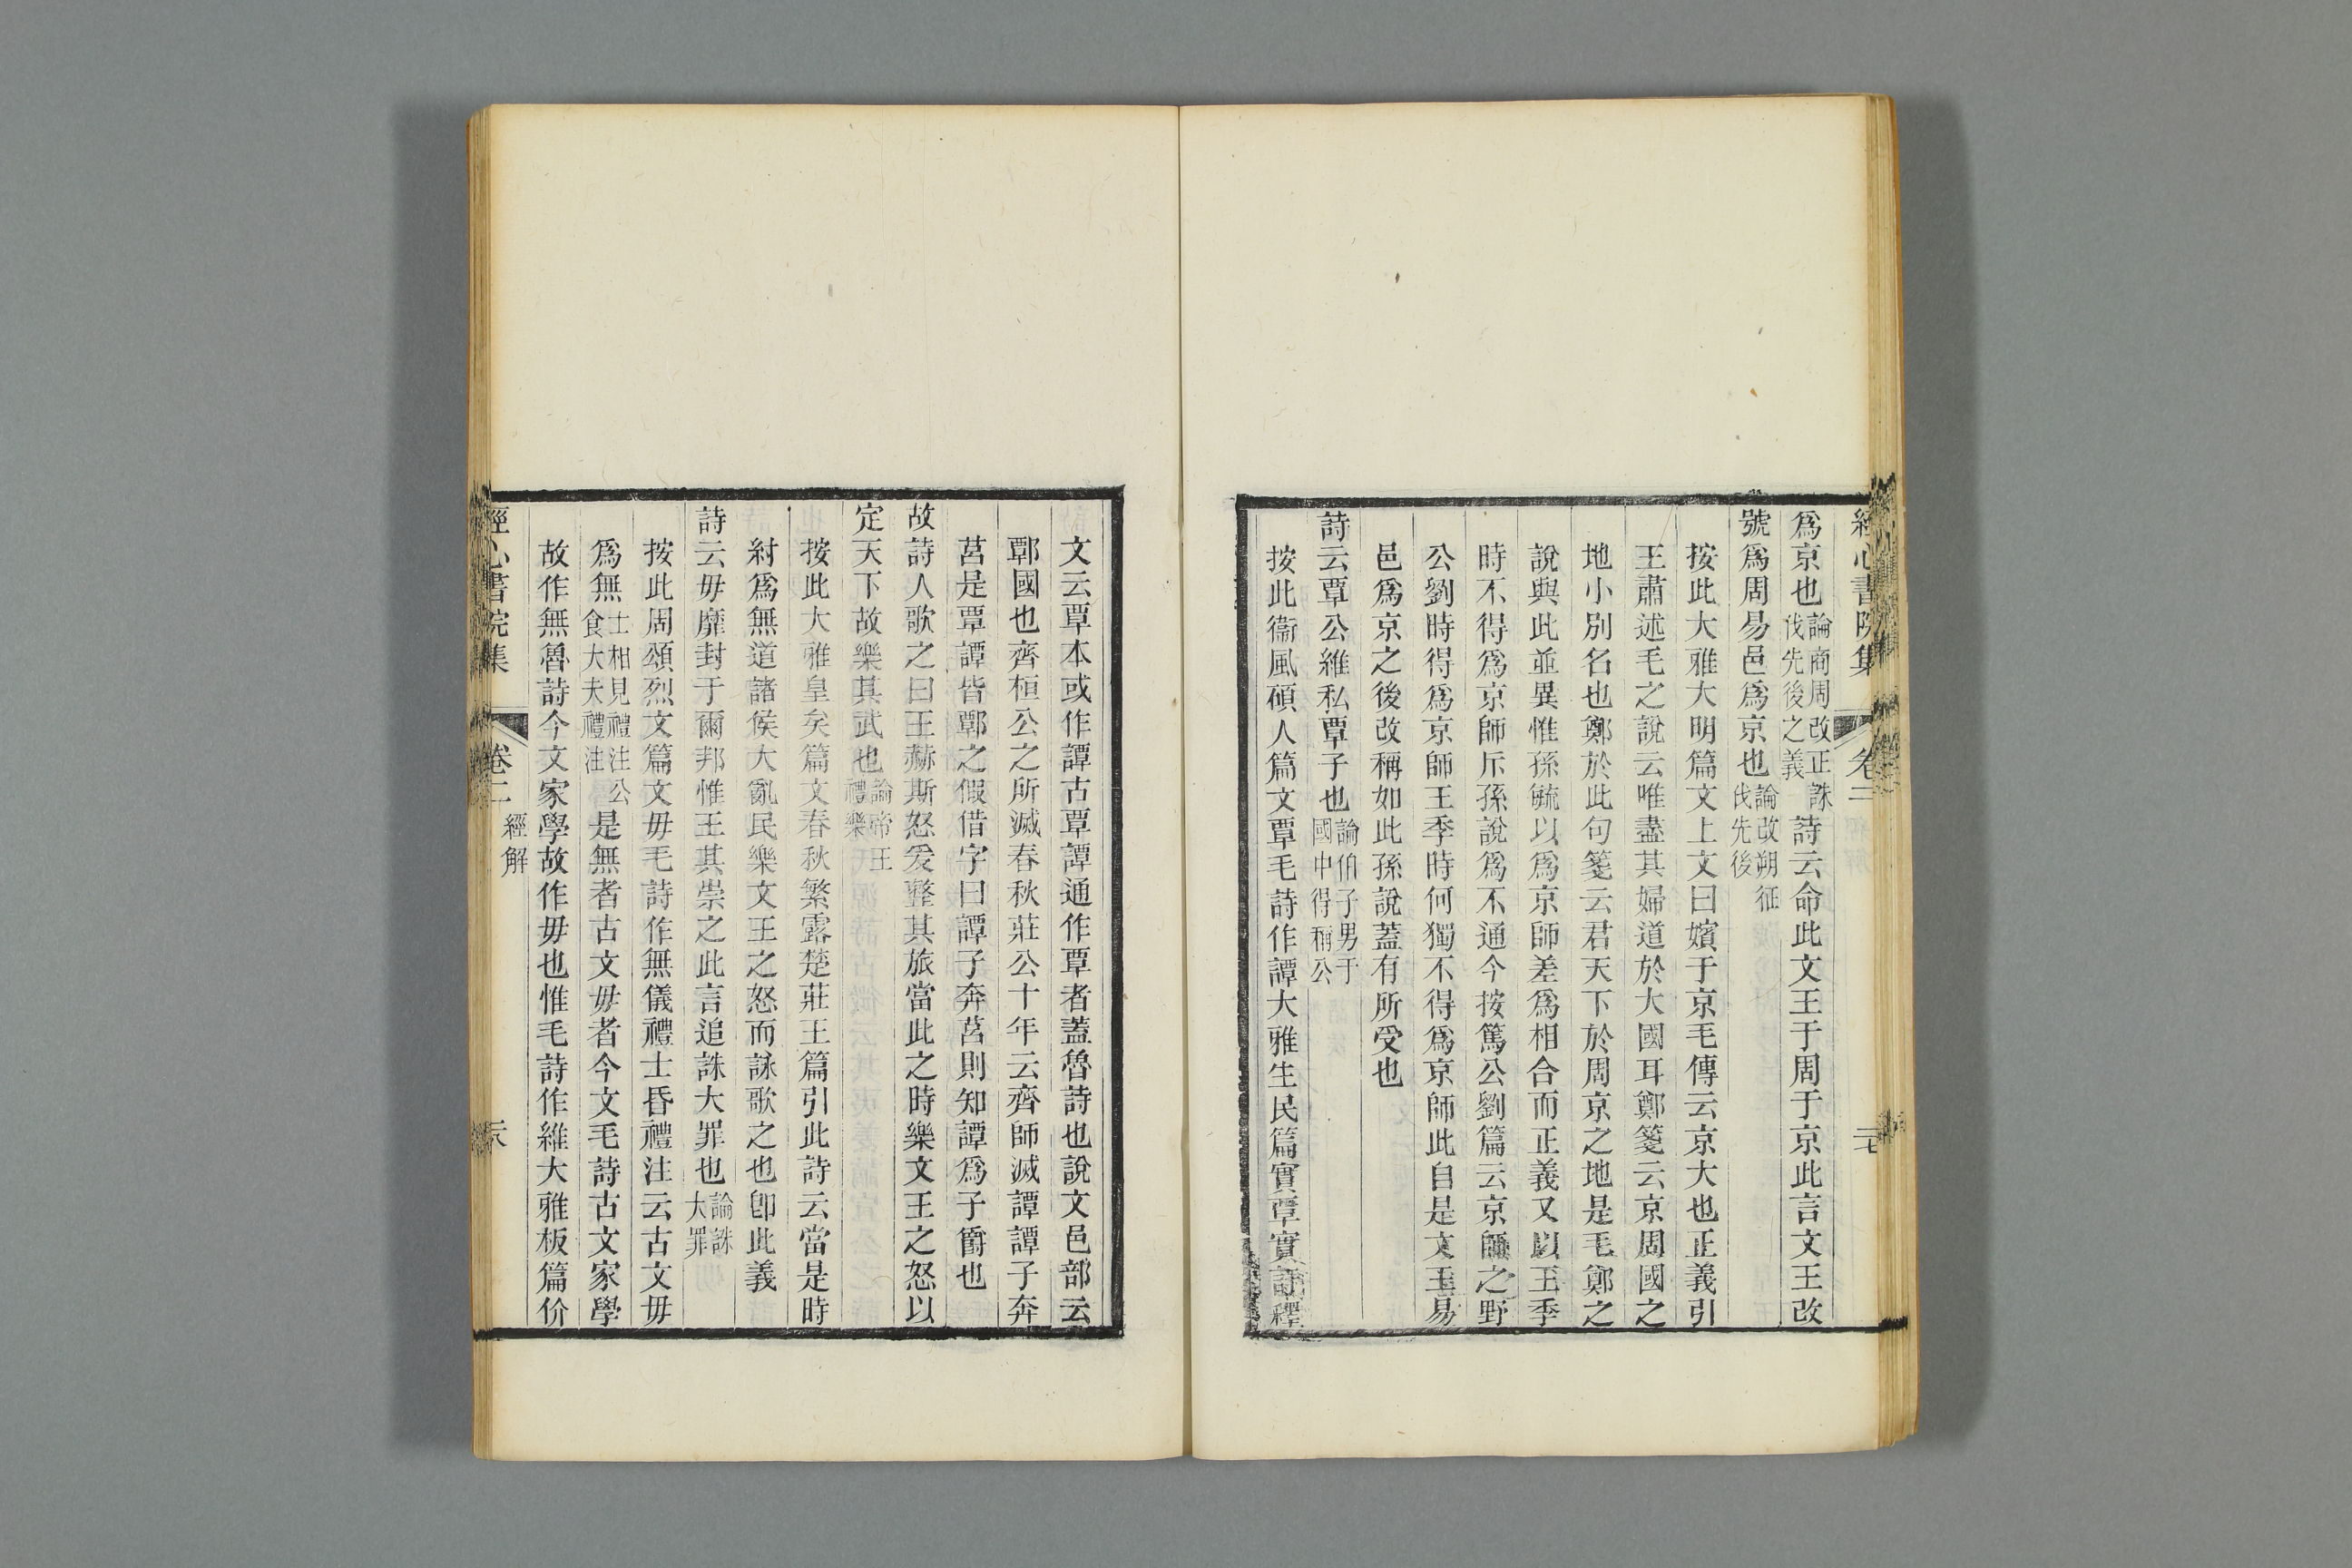 經心書院集 卷二 二七
爲京也論商周改正誅伐先後之義詩云命此文王于周于京此言文王改
號爲周易邑爲京也論改朔征伐先後
按此大雅大明篇文上文曰嬪于京毛傳云京大也正義引
王肅述毛之說云唯盡其婦道於大國耳鄭箋云京周國之
地小別名也鄭於此句箋云君天下於周京之地是毛鄭之
說與此並異惟孫毓以爲京師差爲相合而正義又以王季
時不得爲京師斥孫說爲不通今按篤公劉篇云京師之野
公劉時得爲京師王季時何獨不得爲京師此自是文王易
邑爲京之後改稱如此孫說蓋有所受也
詩云覃公維私覃子也論伯子男于國中得稱公
按此衞風碩人篇文覃毛詩作譚大雅生民篇實覃實訏釋
文云覃本或作譚古覃譚通作覃者蓋魯詩也說文邑部云
鄿國也齊桓公之所滅春秋莊公十年云齊師滅譚譚子奔
莒是覃譚皆鄿之假借字曰譚子奔莒則知譚爲子爵也
故詩人歌之曰王赫斯怒爰整其旅當此之時樂文王之怒以
定天下故樂其武也論帝王禮樂
按此大雅皇矣篇文春秋繁露楚莊王篇引此詩云當是時
紂爲無道諸侯大亂民樂文王之怒而詠歌之也卽此義
詩云毋靡封于爾邦惟王其崇之此言追誅大罪也論誅大罪
按此周頌烈文篇文毋毛詩作無儀禮士昏禮注云古文毋
爲無士相見禮注公食大夫禮注是無者古文毋者今文毛詩古文家學
故作無魯詩今文家學故作毋也惟毛詩作維大雅板篇价
經心書院集 卷二 經解 二八